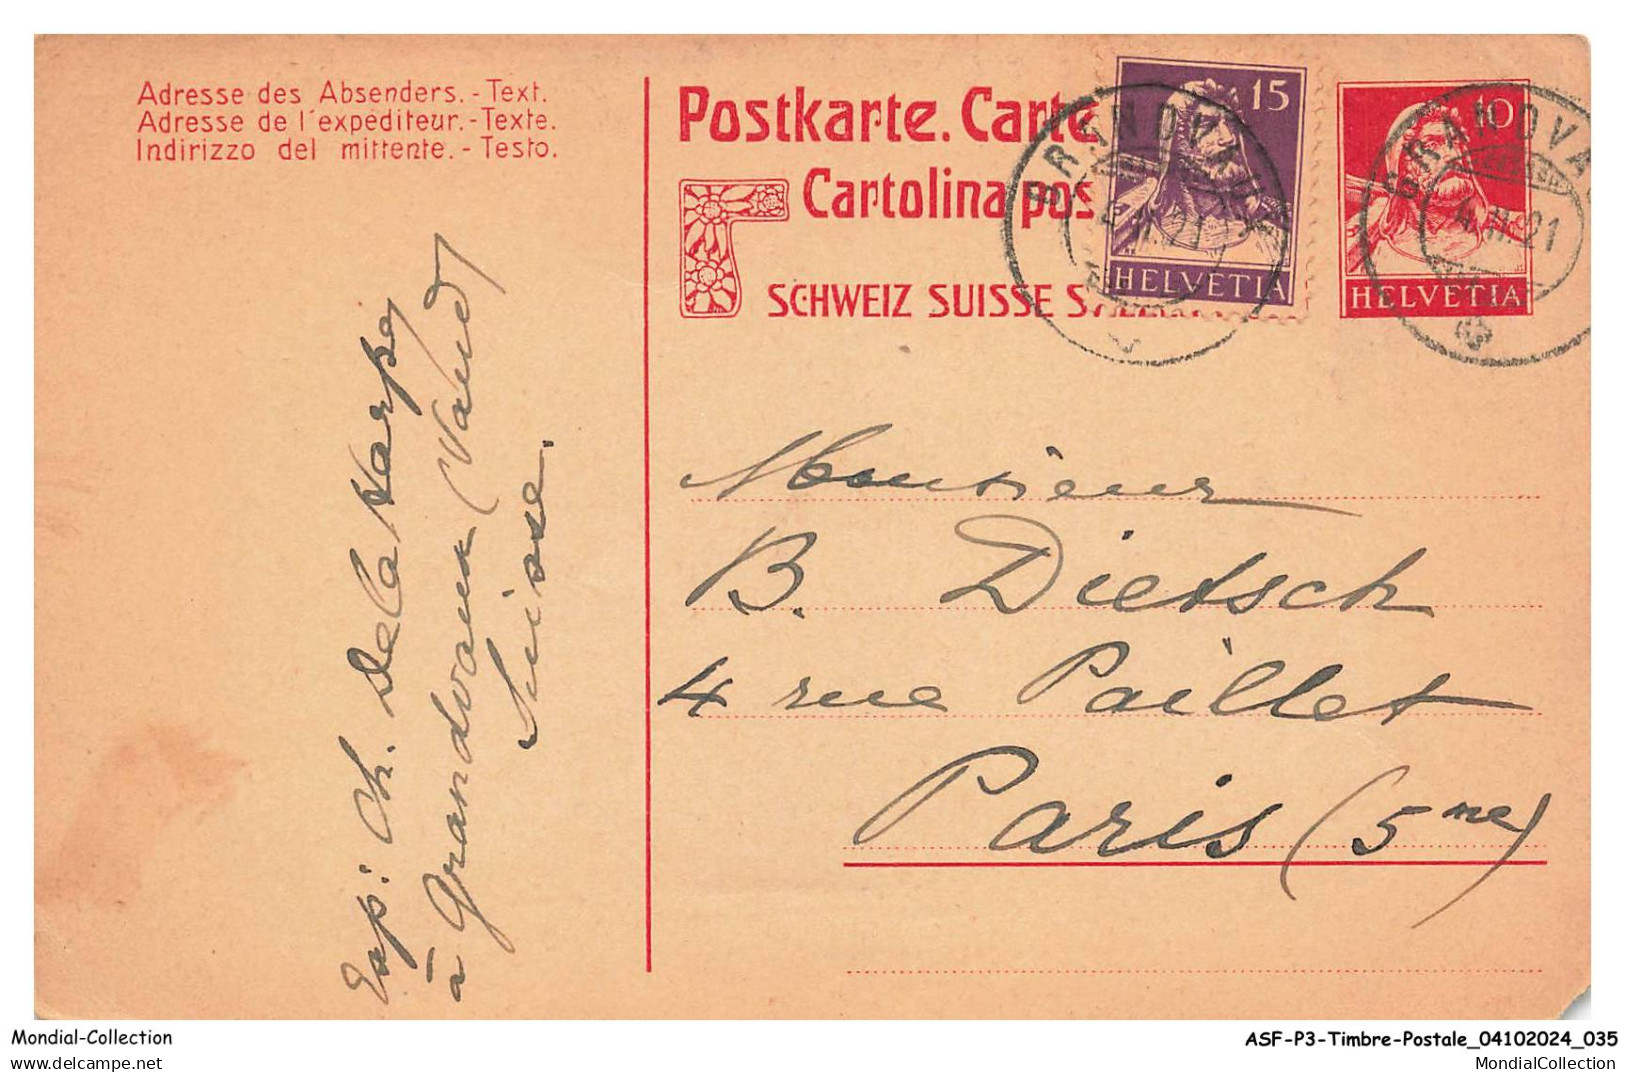 Adresse des Absenders. - Text.
Adresse de l'expéditeur. - Texte.
Indirizzo del mittente. - Testo.
Postkarte. Carte
Cartolina pos
SCHWEIZ SUISSE S
15
HELVETIA
10
HELVETIA
GRANDVAUX
II. 21
GRANDVA
II. 21
Monsieur
B. Dietsch
4 rue Paillet
Paris (5me)
Exp: Ch. De la Harpe
à Grandvaux (Vaud)
Suisse.
Mondial-Collection
delcampe.net
ASF-P3-Timbre-Postale_04102024_035
MondialCollection